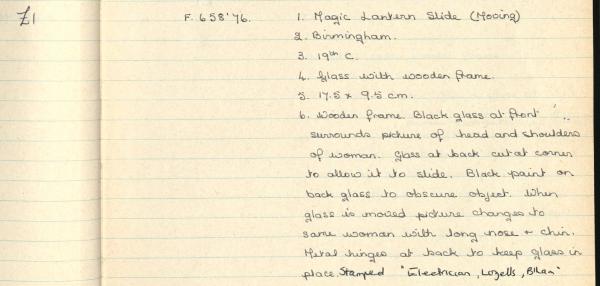 £1 F. 658'76. 1. Magic Lantern Slide (Moving)
2. Birmingham.
3. 19th C.
4. Glass with wooden frame.
5. 17.5 x 9.5 cm.
6. Wooden frame. Black glass at front
surrounds picture of head and shoulders
of woman. Glass at back cut at corner
to allow it to slide. Black paint on
back glass to obscure object. When
glass is moved picture changes to
same woman with long nose + chin.
Metal hinges at back to keep glass in
place. Stamped "Electrician, Lozells, B'ham"